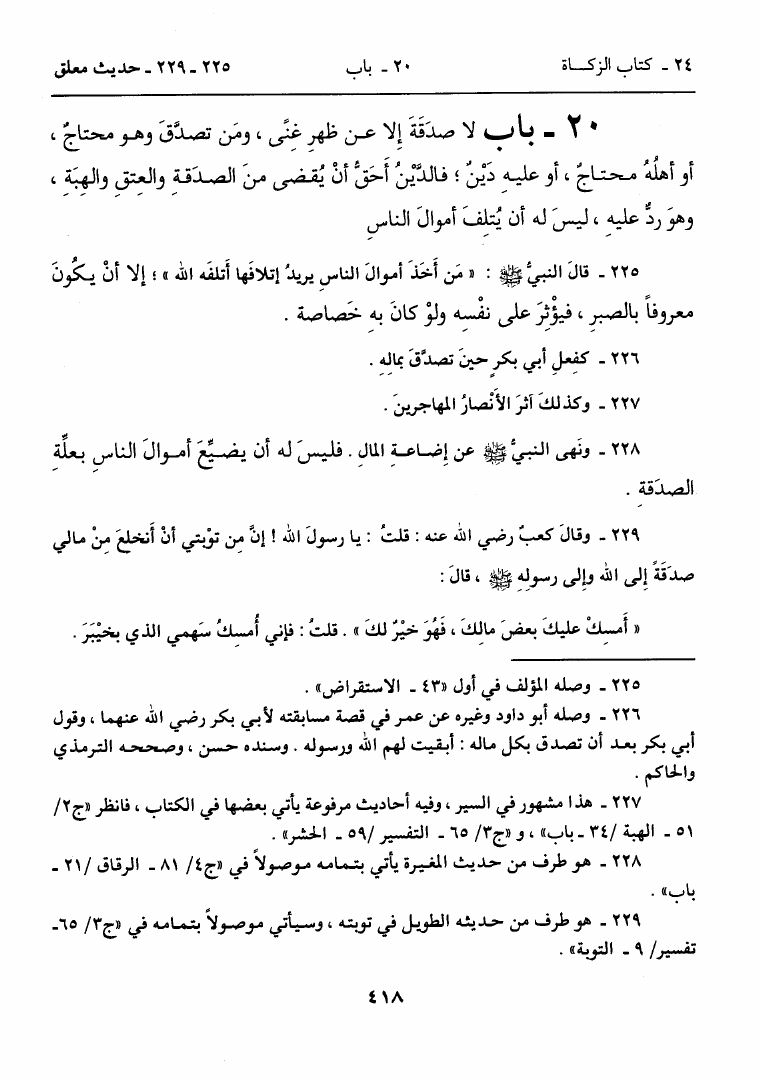 ٢٤ ـ كتاب الزكــاة ٢٠ ـ باب ٢٢٥ ـ ٢٢٩ ـ حديث معلق
٢٠ ـ باب لا صدَقَةَ إلا عـن ظهرِ غِنًى ، ومَن تصدَّقَ وهـو محتاجٌ ،
أو أهلُهُ محـتـاجٌ ، أو عليـهِ دَيْنٌ ؛ فـالدَّيْنُ أَحَقُّ أنْ يُقـضى منَ الصـدَقـةِ والعِتقِ والهِبَةِ ،
وهوَ ردٌّ عليهِ ، ليسَ له أن يُتلِفَ أموالَ الناسِ
٢٢٥ ـ قالَ النبيُّ ﷺ : « مَن أَخَذَ أموالَ الناسِ يريدُ إتلافَها أَتلفَه الله » ؛ إلا أنْ يـكُونَ
معروفاً بالصبرِ ، فيؤْثِرَ على نفْسِه ولوْ كانَ بهِ خَصاصة .
٢٢٦ ـ كفِعلِ أبي بكرٍ حينَ تصدَّقَ بمالِهِ .
٢٢٧ ـ وكذلكَ آثرَ الأَنْصارُ المهاجرينَ .
٢٢٨ ـ ونَهى النبيُّ ﷺ عن إضـاعـةِ المالِ . فليسَ له أن يضـيِّعَ أمـوالَ الناسِ بعلَّةِ
الصدَقةِ .
٢٢٩ ـ وقالَ كعبٌ رضي الله عنه : قلتُ : يا رسولَ الله ! إنَّ مِن توْبتي أنْ أَنخلعَ مِنْ مالي
صدَقَةً إلى الله وإلى رسولِهِ ﷺ ، قالَ :
« أَمسِكْ عليكَ بعضَ مالِكَ ، فَهُوَ خيْرٌ لكَ » . قلتُ : فإني أُمسِكُ سَهمي الذي بخيْبَرَ .
٢٢٥ ـ وصله المؤلف في أول «٤٣ ـ الاستقراض» .
٢٢٦ ـ وصله أبو داود وغيره عن عمر في قصة مسابقته لأبي بكر رضي الله عنهما ، وقول
أبي بكر بعـد أن تصدق بكل مـاله : أبقيت لهم الله ورسـوله . وسنده حسن ، وصححـه الترمذي
والحاكم .
٢٢٧ ـ هذا مشهور في السير ، وفيه أحاديث مرفوعة يأتي بعضها في الكتاب ، فانظر «ج٢/
٥١ ـ الهبة /٣٤ ـ باب» ، و «ج٣/ ٦٥ ـ التفسير /٥٩ ـ الحشر» .
٢٢٨ ـ هو طرف من حديث المغيرة يأتي بتـمامه مـوصولاً في «ج٤/ ٨١ ـ الرقاق /٢١ ـ
باب» .
٢٢٩ ـ هو طرف من حديثه الطويل في توبته ، وسيأتي موصولاً بتمامه في «ج٣/ ٦٥ـ
تفسير/ ٩ ـ التوبة» .
٤١٨